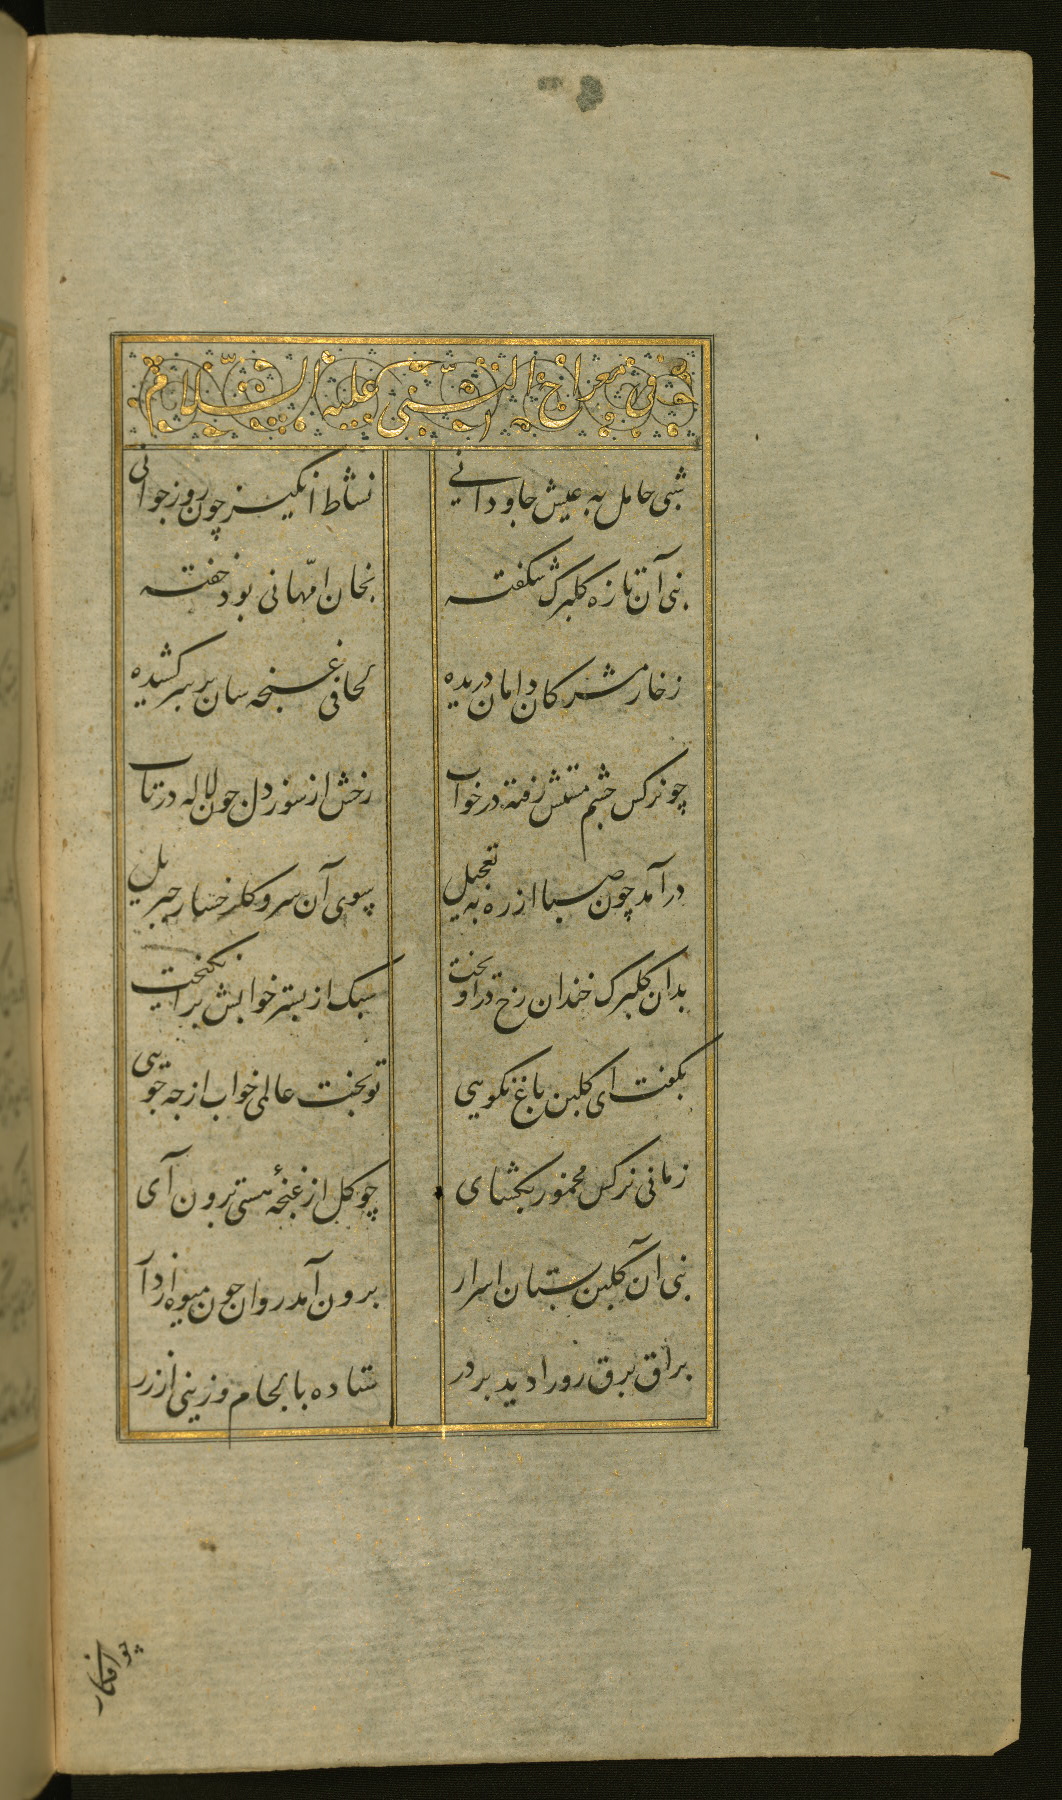 فی معراج النبی علیه السلام
شبی حامل به عیش جاودانی نشاط انکیز چون روز جوانی
نبی آن تازه کلبرک شکفته بخان امهانی بود خفته
زخار مشرکان دامان دریده لحافی غنجه سان بر سر کشیده
چو نرکس چشم مستش رفته در خواب رخش از سوز دل چون لاله در تاب
درآمد چون صبا از ره به تعجیل بسوی آن سرو کلرخسار جبریل
بدان کلبرک خندان رخ در اویخت سبک از بستر خوابش برانکیخت
بکفت ای کلبن باغ نکویی تو بخت عالمی خواب از چه جویی
زمانی نرکس مخمور بکشای چو کل از غنجهٔ هستی برون آی
نبی آن کلبن بستان اسرار برون آمد روان چون میوه از دار
براق برق رو را دید بر در ستاده با لجام و زینی از زر
چو افکار